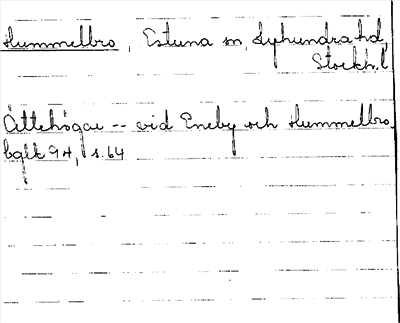 Hummelbro, Estuna sn, Lyhundra hd,
Stockh.l
Ättehögar -- vid Eneby och Hummelbro.
s. 64